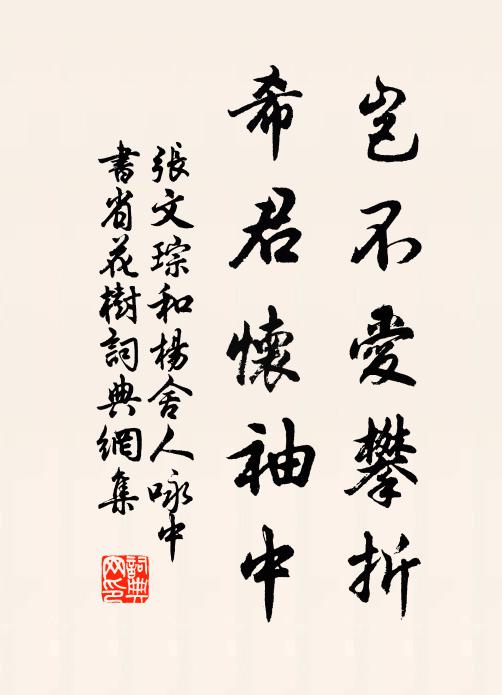 豈不愛攀折
希君懷袖中
張文琮和楊舍人咏中
書省花樹詞典網集
詞典网印